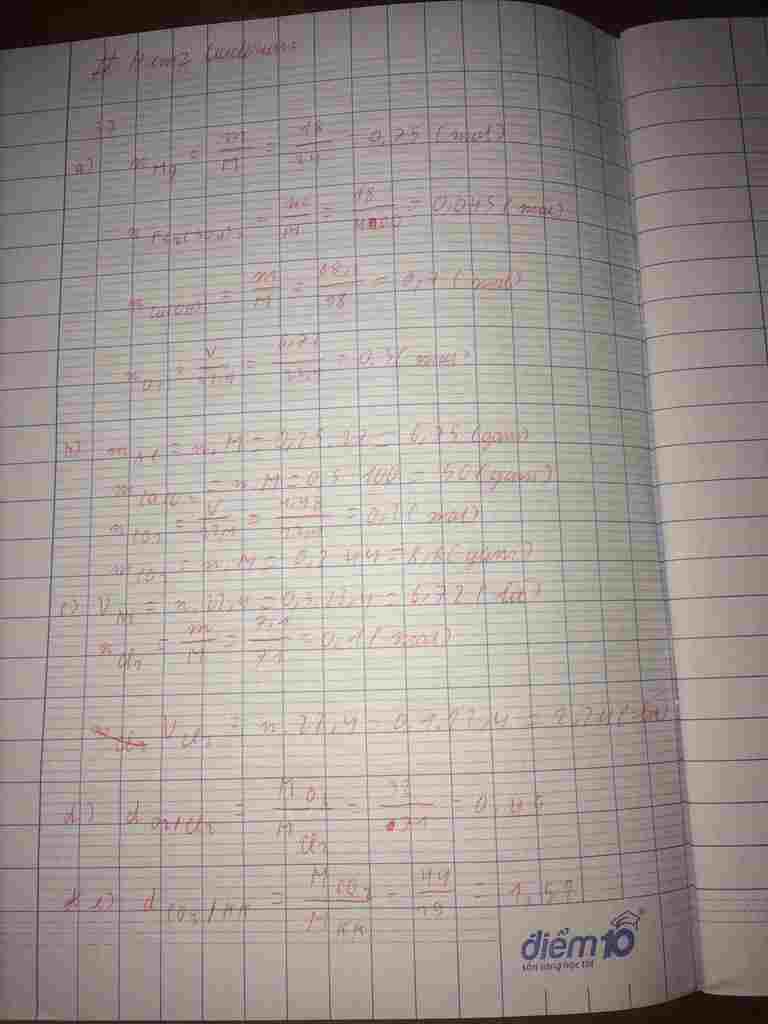 a) n Mg = m/M = 18/24 = 0,75 (mol)
n Fe2(SO4)3 = m/M = 18/400 = 0,045 (mol)
= m/M = /98 = 0,7 (mol)
n O2 = V/22,4 = 6,72/22,4 = 0,3 (mol)
b) m Al = n.M = 0,25.27 = 6,75 (gam)
m CaCO3 = n.M = 0,5.100 = 50 (gam)
n CO2 = V/22,4 = 4,48/22,4 = 0,2 (mol)
m CO2 = n.M = 0,2.44 = 8,8 (gam)
c) V = n.22,4 = 0,3.22,4 = 6,72 (lit)
n Cl2 = m/M = 7,1/71 = 0,1 (mol)
V Cl2 = n.22,4 = 0,1.22,4 = 2,24 (lit)
d) d O2/Cl2 = M O2/M Cl2 = 32/71 = 0,45
e) d CO2/KK = M CO2/M KK = 44/29 = 1,57
điểm10
sẵn sàng học tốt